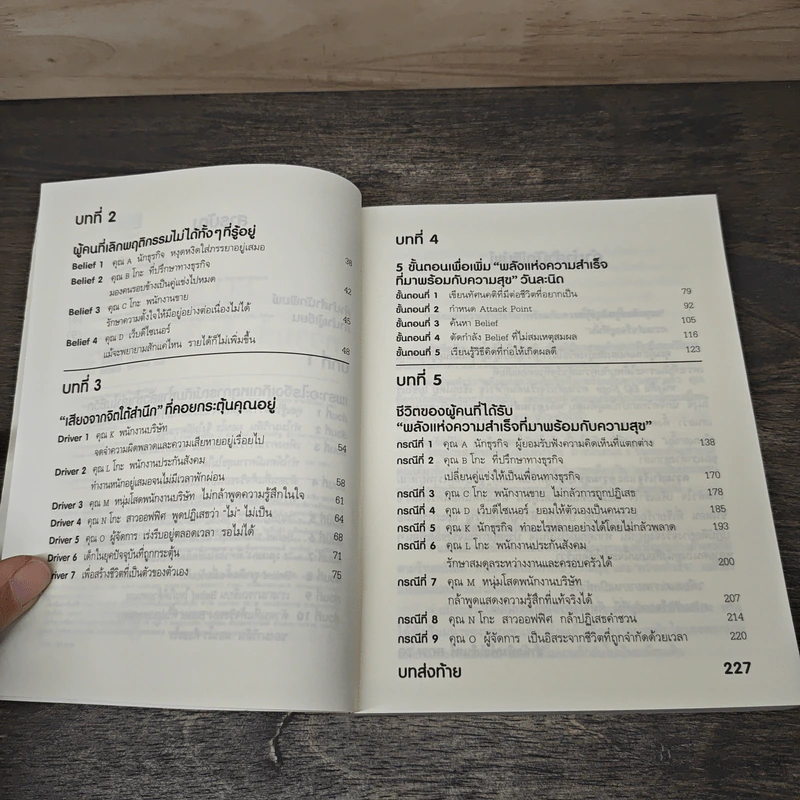 บทที่ 2
ผู้คนที่เลิกพฤติกรรมไม่ได้ทั้งๆ ที่รู้อยู่
Belief 1 คุณ A นักธุรกิจ หงุดหงิดใส่ภรรยาอยู่เสมอ 38
Belief 2 คุณ B โกะ ที่ปรึกษาทางธุรกิจ
มองคนรอบข้างเป็นคู่แข่งไปหมด 42
Belief 3 คุณ C โกะ พนักงานขาย
รักษาความตั้งใจให้มีอยู่อย่างต่อเนื่องไม่ได้ 45
Belief 4 คุณ D เว็บดีไซเนอร์
แม้จะพยายามสักแค่ไหน รายได้ก็ไม่เพิ่มขึ้น 48
บทที่ 3
“เสียงจากจิตใต้สำนึก” ที่คอยกระตุ้นคุณอยู่
Driver 1 คุณ K พนักงานบริษัท
จดจำความผิดพลาดและความเสียหายอยู่เรื่อยไป 54
Driver 2 คุณ L โกะ พนักงานประกันสังคม
ทำงานหนักอยู่เสมอจนไม่มีเวลาพักผ่อน 58
Driver 3 คุณ M หนุ่มโสดพนักงานบริษัท ไม่กล้าพูดความรู้สึกในใจ 61
Driver 4 คุณ N โกะ สาวออฟฟิศ พูดปฏิเสธว่า “ไม่” ไม่เป็น 64
Driver 5 คุณ O ผู้จัดการ เร่งรีบอยู่ตลอดเวลา รอไม่ได้ 68
Driver 6 เด็กในยุคปัจจุบันที่ถูกกระตุ้น 71
iver 7 เพื่อสร้างชีวิตที่เป็นตัวของตัวเอง 75
บทที่ 4
5 ขั้นตอนเพื่อเพิ่ม “พลังแห่งความสำเร็จ
ที่มาพร้อมกับความสุข” วันละนิด
ขั้นตอนที่ 1 เรียนทัศนคติที่มีต่อชีวิตที่อยากเป็น 79
ขั้นตอนที่ 2 กำหนด Attack Point 92
ขั้นตอนที่ 3 ค้นหา Belief 105
ขั้นตอนที่ 4 ตัดกำลัง Belief ที่ไม่สมเหตุสมผล 116
ขั้นตอนที่ 5 เรียนรู้วิธีคิดที่ก่อให้เกิดผลดี 123
บทที่ 5
ชีวิตของผู้คนที่ได้รับ
“พลังแห่งความสำเร็จที่มาพร้อมกับความสุข”
กรณีที่ 1 คุณ A นักธุรกิจ ผู้ยอมรับฟังความคิดเห็นที่แตกต่าง 138
กรณีที่ 2 คุณ B โกะ ที่ปรึกษาทางธุรกิจ
เปลี่ยนคู่แข่งให้เป็นเพื่อนทางธุรกิจ 170
กรณีที่ 3 คุณ C โกะ พนักงานขาย ไม่กลัวการถูกปฏิเสธ 178
กรณีที่ 4 คุณ D เว็บดีไซเนอร์ ยอมให้ตัวเองเป็นคนรวย 185
กรณีที่ 5 คุณ K นักธุรกิจ ทำอะไรหลายอย่างได้โดยไม่กลัวพลาด 193
กรณีที่ 6 คุณ L โกะ พนักงานประกันสังคม
รักษาสมดุลระหว่างงานและครอบครัวได้ 200
กรณีที่ 7 คุณ M หนุ่มโสดพนักงานบริษัท
กล้าพูดแสดงความรู้สึกที่แท้จริงได้ 207
กรณีที่ 8 คุณ N โกะ สาวออฟฟิศ กล้าปฏิเสธคำชวน 214
กรณีที่ 9 คุณ O ผู้จัดการ เป็นอิสระจากชีวิตที่ถูกจำกัดด้วยเวลา 220
บทส่งท้าย 227